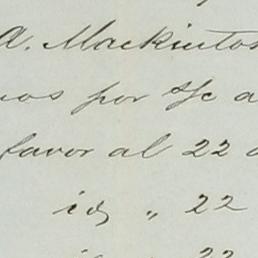 A. Mackintos
nos por s/c a
favor al 22 d
id „ 22
22